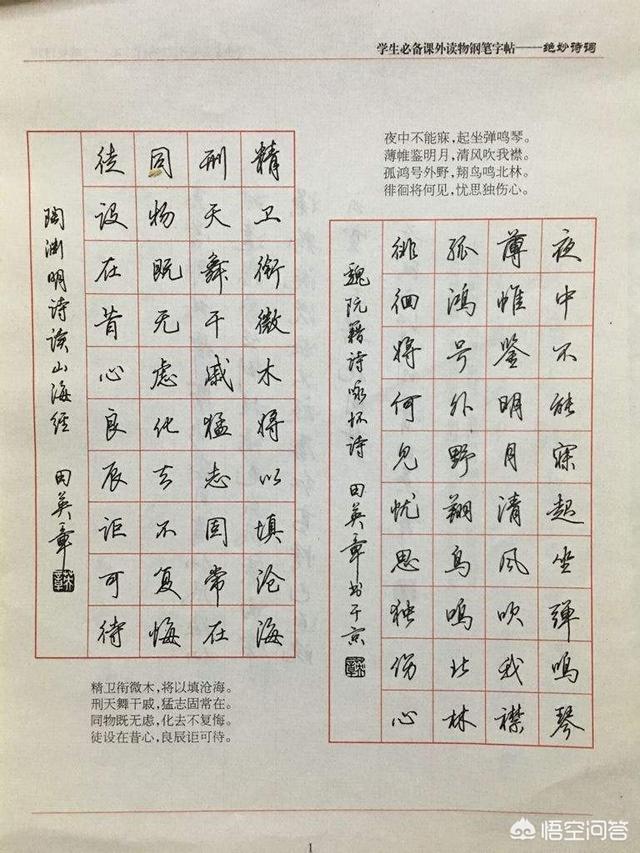 学生必备课外读物钢笔字帖——绝妙诗词
夜中不能寐，起坐弹鸣琴。
薄帷鉴明月，清风吹我襟。
孤鸿号外野，翔鸟鸣北林。
徘徊将何见，忧思独伤心。
夜中不能寐起坐弹鸣琴
薄帷鉴明月清风吹我襟
孤鸿号外野翔鸟鸣北林
徘徊将何见忧思独伤心
魏阮籍诗咏怀诗 田英章书于京
精卫衔微木将以填沧海
刑天舞干戚猛志固常在
同物既无虑化去不复悔
徒设在昔心良辰讵可待
陶渊明诗读山海经 田英章
精卫衔微木，将以填沧海。
刑天舞干戚，猛志固常在。
同物既无虑，化去不复悔。
徒设在昔心，良辰讵可待。
1
悟空问答